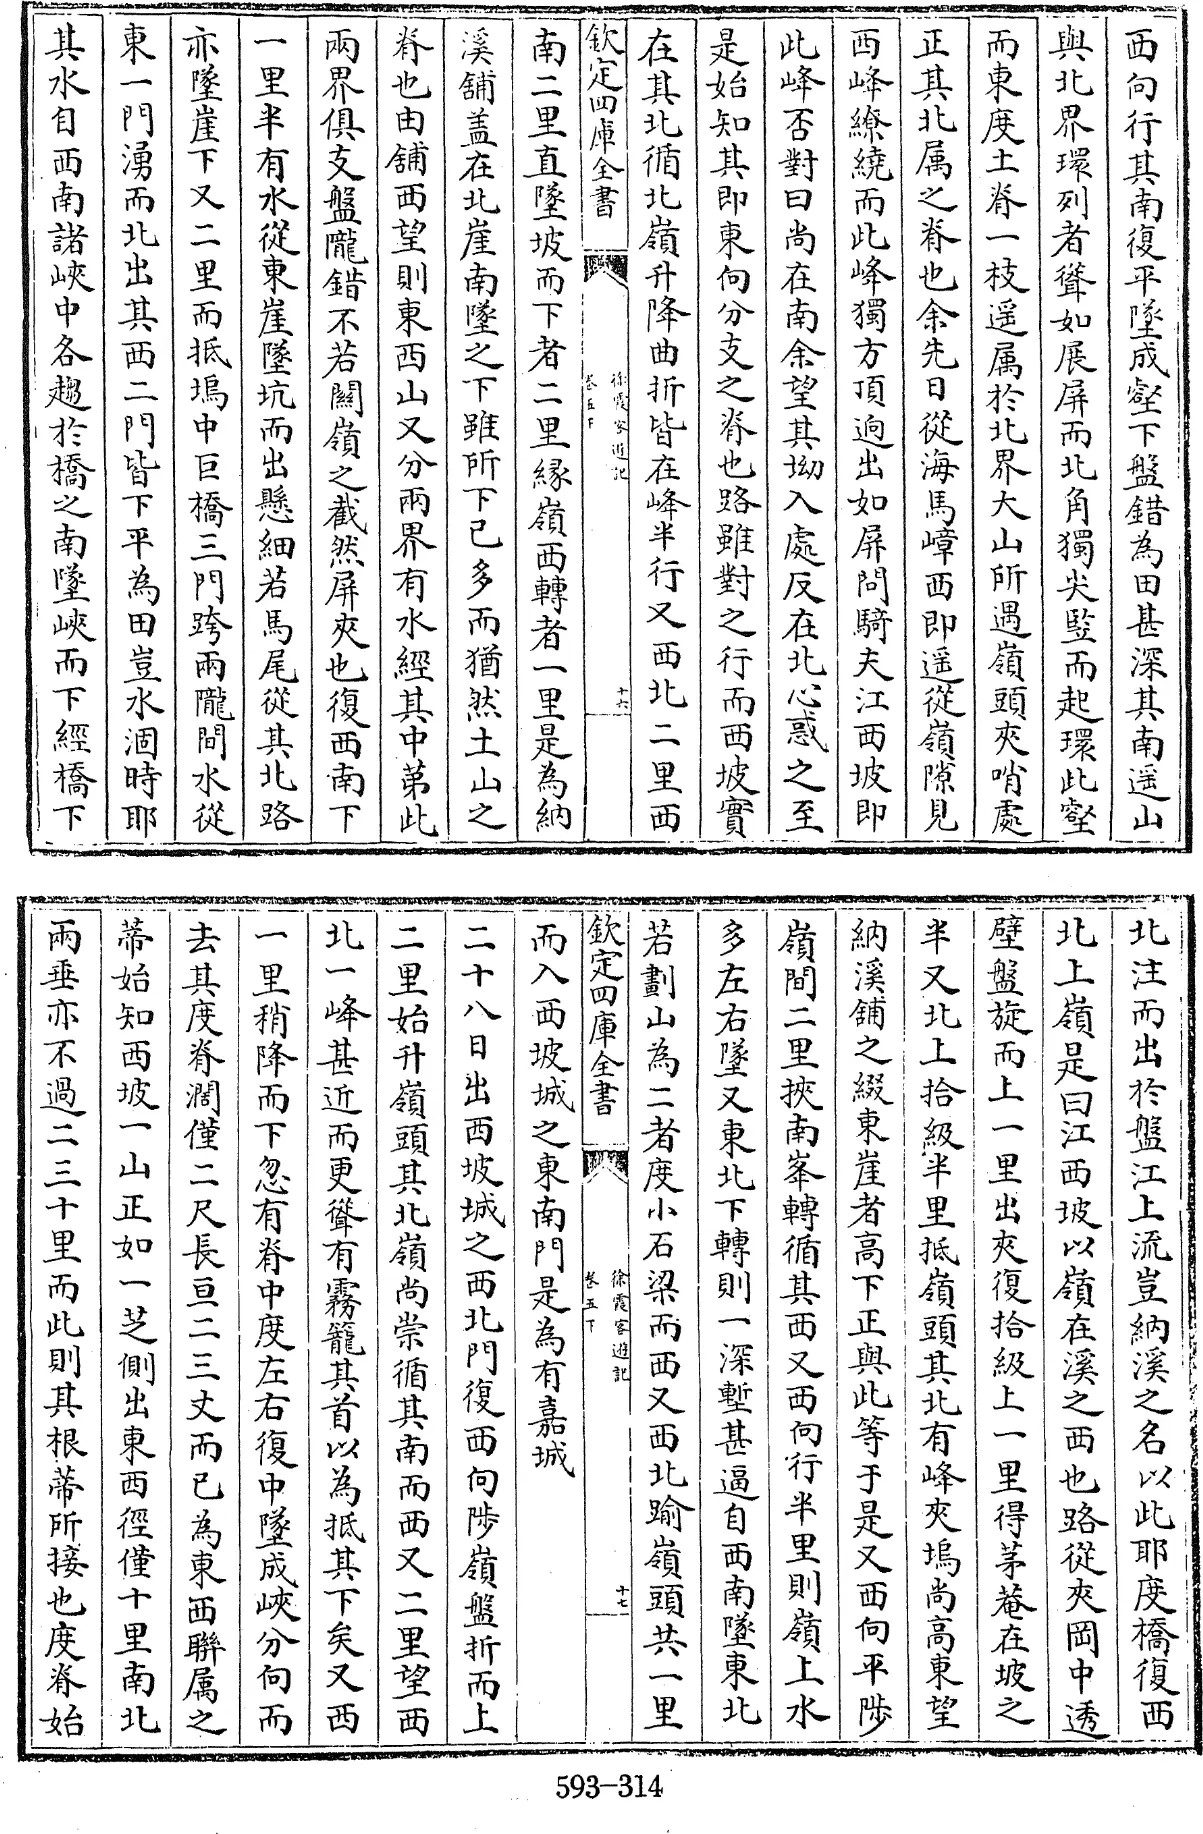 西向行其南復平墜成壑下盤錯為田甚深其南遥山
與北界環列者聳如展屏而北角獨尖竪而起環此壑
而東度土脊一枝遥属於北界大山所遇嶺頭夾哨處
正其北属之脊也余先日從海馬嶂西即遥從嶺隙見
西峰繚繞而此峰獨方頂逈出如屏問騎夫江西坡即
此峰否對曰尚在南余望其坳入處反在北心惑之至
是始知其即東向分支之脊也路雖對之行而西坡實
在其北循北嶺升降曲折皆在峰半行又西北二里西
欽定四庫全書
徐霞客遊記
卷五下
十六
南二里直墜坡而下者二里緣嶺西轉者一里是為納
溪舖盖在北崖南墜之下雖所下已多而猶然土山之
脊也由舖西望則東西山又分兩界有水經其中第此
兩界俱支盤隴錯不若關嶺之截然屏夾也復西南下
一里半有水從東崖墜坑而出懸細若馬尾從其北路
亦墜崖下又二里而抵塢中巨橋三門跨兩隴間水從
東一門湧而北出其西二門皆下平為田豈水涸時耶
其水自西南諸峽中各趨於橋之南墜峽而下經橋下
北注而出於盤江上流豈納溪之名以此耶度橋復西
北上嶺是曰江西坡以嶺在溪之西也路從夾岡中透
壁盤旋而上一里出夾復拾級上一里得茅菴在坡之
半又北上拾級半里抵嶺頭其北有峰夾塢尚高東望
納溪舖之綴東崖者高下正與此等于是又西向平陟
嶺間二里挾南峯轉循其西又西向行半里則嶺上水
多左右墜又東北下轉則一深塹甚逼自西南墜東北
若劃山為二者度小石梁而西又西北踰嶺頭共一里
欽定四庫全書
徐霞客遊記
卷五下
十七
而入西坡城之東南門是為有嘉城
二十八日出西坡城之西北門復西向陟嶺盤折而上
二里始升嶺頭其北嶺尚崇循其南而西又二里望西
北一峰甚近而更聳有霧籠其首以為抵其下矣又西
一里稍降而下忽有脊中度左右復中墜成峽分向而
去其度脊濶僅二尺長亘二三丈而已為東西聯属之
蒂始知西坡一山正如一芝側出東西徑僅十里南北
兩垂亦不過二三十里而此則其根蒂所接也度脊始
593-314